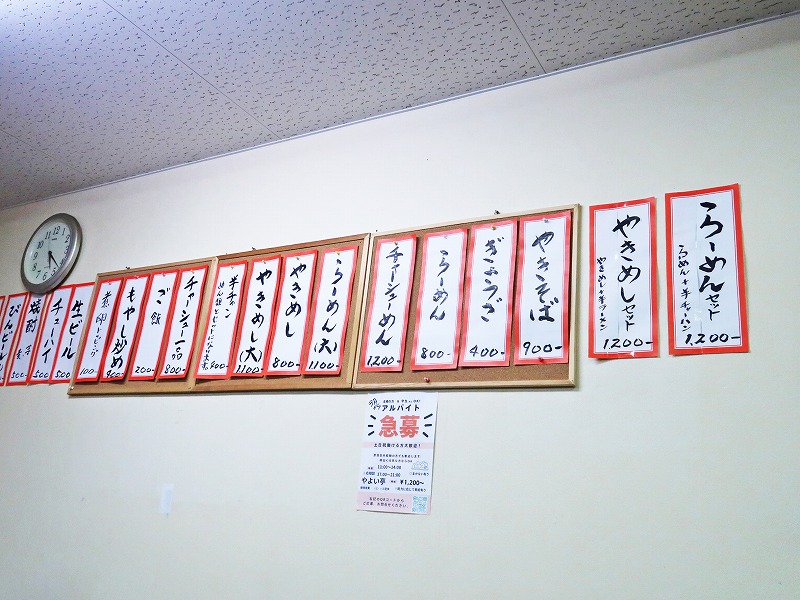 らーめんセット
らーめん+半チャーハン
1,200-
やきめしセット
やきめし+半ラーメン
1200-
やきそば
900-
ぎょうざ
400-
らーめん
800-
チャーシューめん
1200-
らーめん(大)
1100-
やきめし
800-
やきめし(大)
1100-
半チャン
400-
チャーシュー一品
800-
ご飯
200-
もやし炒め
900-
煮卵トッピング
100-
生ビール
500
チューハイ
500-
焼酎
500-
びんビール
500-
12
アルバイト
急募
土日祝働ける方大歓迎!
11:00〜14:00
17:00〜21:00
やよい亭
¥1,200〜